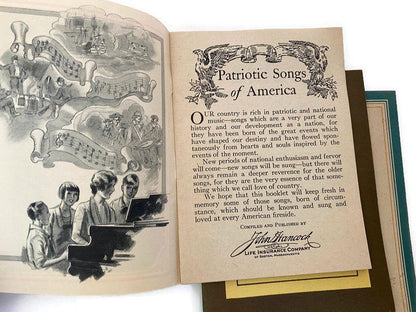 Patriotic Songs
of America
OUR country is rich in patriotic and national
music—songs which are a very part of our
history and our development as a nation, for
they have been born of the great events which
have shaped our destiny and have flowed spon-
taneously from hearts and souls inspired by the
events of the moment.
New periods of national enthusiasm and fervor
will come—new songs will be sung—but there will
always remain a deeper reverence for the older
songs, for they are the very essence of that some-
thing which we call love of country.
We hope that this booklet will keep fresh in
memory some of those songs, born of circum-
stance, which should be known and sung and
loved at every American fireside.
COMPILED AND PUBLISHED BY
John Hancock
LIFE INSURANCE COMPANY
OF BOSTON, MASSACHUSETTS